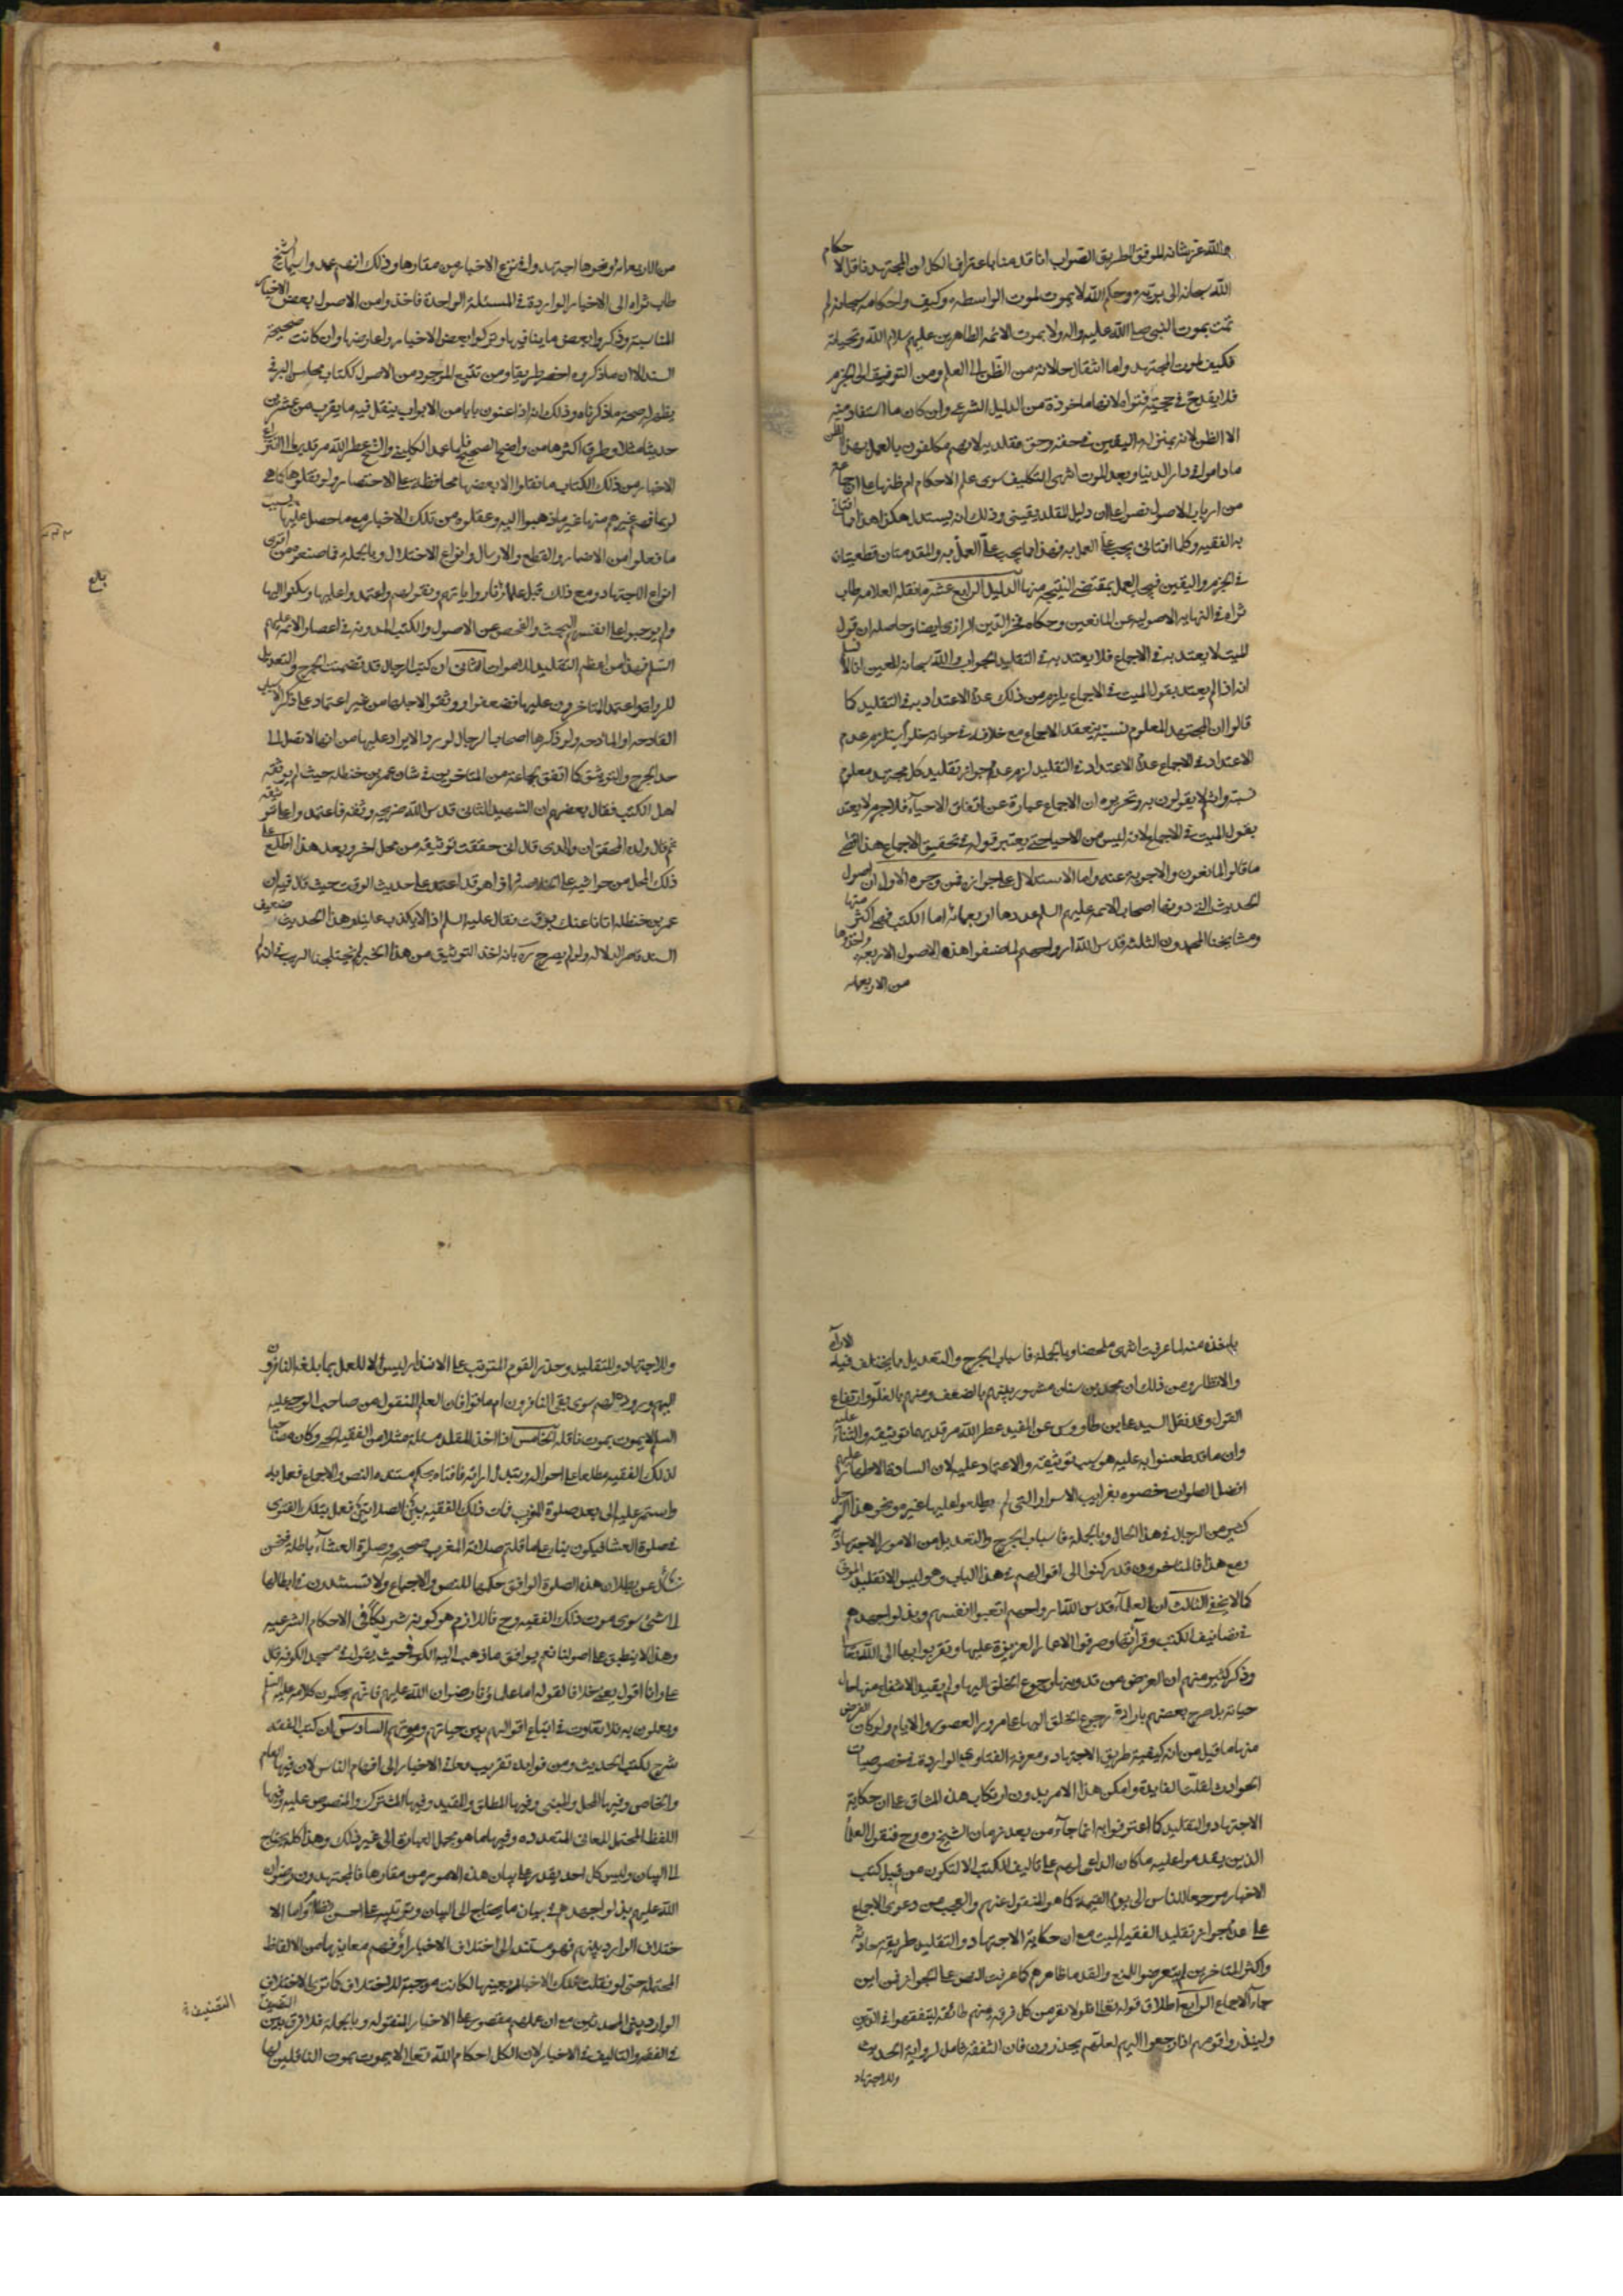 والله عز شانه الموفق لطريق الصواب انا قد منا باعتراف الكل ان المجتهد ناقل لاحكام
الله سبحانه الى بريته وحكم الله لا يموت لموت الواسطه وكيف واحكامه سبحانه لم
تمت بموت النبي صلى الله عليه واله ولا بموت الائمه الطاهرين عليهم سلام الله وتحياته
فكيف لموت المجتهد واما انتقال حالاته من الظن الى العلم ومن التوفيق الى الجزم
فلا يقدح في حجيته فتواه لانها ماخوذة من الدليل الشرعي وان كان ما استفاد منه
الا الظن لانه بمنزلة اليقين في حقه وحق مقلديه لانهم مكلفون بالعمل بهذا الظن
ماداموا في دار الدنيا وبعد الموت انتهى التكليف سوى علم الاحكام ام ظنها على ان جماعة
من ارباب الاصول نصوا على ان دليل المقلد يقيني وذلك انه يستدل هكذا هذا ما افتاني
به الفقيه وكلما افتاني يجب علي العمل به فهذا ما يجب علي العمل به والمقدمتان قطعيتان
في الجزم واليقين فيجب العمل بمقتضى النتيجه منها الدليل الرابع عشر ما نقله العلامه طاب
ثراه في النهايه الاصوليه عن المانعين وحكاه فخر الدين الرازي ايضا وحاصله ان قول
الميت لا يعتد به في الاجماع فلا يعتد به في التقليد الجواب والله سبحانه المعين انا لا نسلم
انه اذا لم يعتد بقول الميت في الاجماع يلزم من ذلك عدم الاعتداد به في التقليد كما
قالوا ان المجتهد المعلوم نسبته ينعقد الاجماع مع خلافه في حياته فلو استلزم عدم
الاعتداد في الاجماع عدم الاعتداد في التقليد لزم عدم جواز تقليد كل مجتهد معلوم
نسبته وانتم لا يقولون به وتحريره ان الاجماع عبارة عن اتفاق الاحياء فلا جرم لا يعتد
بقول الميت في الاجماع لانه ليس من الاحياء حتى يعتبر قوله في تحقيق الاجماع هذا
ما قالوا المانعون والاجوبة عنه واما الاستدلال على جوازه فمن وجوه الاول ان اصول
الحديث التي دونها اصحاب الائمه عليهم السلم عددها اربعمائه اما الكتب فهي اكثر منها
ومشايخنا المحمدون الثلثه قدس الله ارواحهم لما صنفوا هذه الاصول الاربعه واخذوها
من الاربعمائه
من الاربعمائة ونحوها اجتهدوا في نوع الاخبار من مقارها وذلك انهم عمدوا سيما الشيخ
طاب ثراه الى الاخبار الواردة في المسئلة الواحدة فاخذوا من الاصول بعض الاخبار
المناسبة وذكروا بعض ما ينافيها وتركوا بعض الاخبار واعارضها وان كانت صحيحة
السند الا ان ما ذكروه اخصر طريقا ومن تتبع الموجود من الاصول ككتاب محاسن البرقي
يظهر له صحة ما ذكرناه وذلك انه اذا عنون بابا من الابواب ينقل فيه ما يقرب من عشرين
حديثا مثلا وطرق اكثرها من واضح الصحيح فلما عمد الكليني والشيخ عطر الله مرقديهما الى انتزاع
الاخبار من ذلك الكتاب ما نقلوا الا بعضها محافظة على الاختصار ولو نقلوها كما هي
لربما فهم غيرهم منها غير ما ذهبوا اليه وعقلوه من تلك الاخبار مع ما حصل عليها بسبب
ما فعلوا من الاضمار والقطع والارسال وانواع الاختلال وبالجمله فما صنعوه من اقوى
انواع الاجتهاد ومع ذلك قبل علماؤنا رواياتهم ونقولهم واعتمدوا عليها وسكنوا اليها
ولم يوجبوا على انفسهم البحث والفحص عن الاصول والكتب المدونه في اعصار الائمه عليهم
السلم فهذا من اعظم التقليد للاموات الثاني ان كتب الرجال قد تضمنت الجرح والتعديل
للرواة واعتمد المتاخرون عليها فضعفوا ووثقوا الاجلها من غير اعتماد على ذكر الاسباب
القادحه او المادحه ولو ذكرها اصحاب الرجال لورد الايراد عليها من انها لا تصل الى
حد الجرح والتوثيق كما اتفق لجماعة من المتاخرين في شان عمر بن حنظله حيث لم يوثقه
اهل الكتب فقال بعضهم ان الشهيد الثاني قدس الله ضريحه وثقه فاعتمدوا على توثيقه
ثم قال ولده المحقق ان والدي قال اني حققت توثيقه من محل اخر وبعد هذا اطلع على
ذلك المحل من حواشيه على الخلاصه فاذا هو قد اعتمد على حديث الوقت حيث قال فيه ان
عمر بن حنظله اتانا عنك بوقت فقال عليه السلم اذا لا يكذب علينا وهذا الحديث ضعيف
السند قاصر الدلاله ولو لم يصرح ره بانه اخذ التوثيق من هذا الخبر لم يحتلجنا الريب في انه لم
بلغ
ياخذه منه لما عرفت انتهى ملخصا وبالجملة فاسباب الجرح والتعديل ما يختلف فيه الاراء
والانظار ومن ذلك ان محمد بن سنان مشهور بينهم بالضعف ومنهم بالغلو وارتفاع
القول وقد نقل السيد علي بن طاووس عن المفيد عطر الله مرقديهما توثيقه والثناء عليه
وان ما قد طعنوا به عليه هو سبب توثيقه والاعتماد عليه لان السادة الاطهار عليهم
افضل الصلوات خصوه بغرايب الاسرار التي لم يطلعوا عليها غيره ونحو هذا الرجل
كثير من الرجال في هذا الحال وبالجملة فاسباب الجرح والتعديل من الامور الاجتهادية
ومع هذا فالمتاخرون قد ركنوا الى اقوالهم في هذا الباب وهو ليس الا تقليد الموتى
كما لا يخفى الثالث ان العلماء قدس الله ارواحهم اتعبوا انفسهم وبذلوا جهدهم
في تصانيف الكتب وقرائتها وصرفوا الاعمار العزيزة عليها وتقربوا بها الى الله تعالى
وذكر كثير منهم ان الغرض من تدوينها رجوع الخلق اليها ولم يقيد الانتفاع منها حال
حياته بل صرح بعضهم بارادة رجوع الخلق اليها على مرور العصور والايام ولو كان الغرض
منها ما قيل من انه كيفية طريق الاجتهاد ومعرفة الفتاوي الواردة في خصوصيات
الحوادث لقلت الفايدة وامكن هذا الامر بدون ارتكاب هذه المشاق على ان حكاية
الاجتهاد والتقليد كما اعترفوا به انما جآء من بعد زمان الشيخ ره وح فنقول العلماء
الذين تقدموا عليه ما كان الداعي لهم على تاليف الكتب الا لتكون من قبيل كتب
الاخبار مرجعا للناس الى يوم القيمة كما هو المنقول عنهم والعجب من دعوى الاجماع
على عدم جواز تقليد الفقيه الميت مع ان حكاية الاجتهاد والتقليد طريقه حادثه
واكثر المتاخرين لم يتعرضوا للمنع والقدماء ظاهرهم كما عرفت النص على الجواز فمن اين
جاء الاجماع الرابع اطلاق قوله تعالى فلولا نفر من كل فرقه منهم طائفه ليتفقهوا في الدين
ولينذروا قومهم اذا رجعوا اليهم لعلهم يحذرون فان التفقه شامل لرواية الحديث
وللاجتهاد
وللاجتهاد وللتقليد وحذر القوم المترتب على الانذار ليس الا للعمل بما بلغه النافرون
اليهم ورووه لهم سوى بقى النافرون ام ماتوا فان العلم المنقول من صاحب الوحي عليه
السلم لا يموت بموت ناقله الخامس اذا اخذ المقلد مسئلة مثلا من الفقيه الحي وكان مصاحبا
لذلك الفقيه مطلعا على احواله وتبدل ارائه فافتاه بحكم مستنده النص والاجماع فعمل به
واستمر عليه الى بعد صلوة المغرب فمات ذلك الفقيه بين الصلاتين فعمل بتلك الفتوى
في صلوة العشا فيكون بناء على ما قلتم صلاته المغرب صحيحه وصلوة العشآء باطله فنحن
نسال عن بطلان هذه الصلوة الوافق حكمها للنص والاجماع ولا تستندون في ابطالها
الى شئ سوى موت ذلك الفقيه وح فاللازم هو كونه شريكا في الاحكام الشرعيه
وهذا لا ينطبق على اصولنا نعم يوافق ما ذهب اليه الكوفي حيث يقول في مسجد الكوفه قال
علي وانا اقول يعني خلافا لقوله اما علماؤنا رضوان الله عليهم فانهم يحكون كلامه عليه السلم
ويعملون به فلا تفاوت في اتباع اقوالهم بين حياتهم وموتهم السادس ان كتب الفقه
شرح لكتب الحديث ومن فوايده تقريب معاني الاخبار الى افهام الناس لان فيها العام
والخاص وفيها المجمل والمبين وفيها المطلق والمقيد وفيها المشترك والمنصوص عليه وفيها
اللفظ المحتمل المعاني المتعدده وفيها ما هو مجمل العبارة الى غير ذلك وهذا كله يحتاج
الى البيان وليس كل احد يقدر على بيان هذه الامور من مقارها فالمجتهدون رضوان
الله عليهم بذلوا جهدهم في بيان ما يحتاج الى البيان وترتيبه على احسن النظام واما الا
ختلاف الوارد بينهم فهو مستند الى اختلاف الاخبار او فهم معانيها من الالفاظ
المحتمله حتى لو نقلت تلك الاخبار بعينها لكانت موجبة للاختلاف كما ترى الاختلاف
الوارد بين المحدثين مع ان عملهم مقصور على الاخبار المنقوله وبالجمله فلا فرق بين التصنيف
في الفقه والتاليف في الاخبار لان الكل احكام الله تعالى لا يموت بموت الناقلين لها
التصنيف